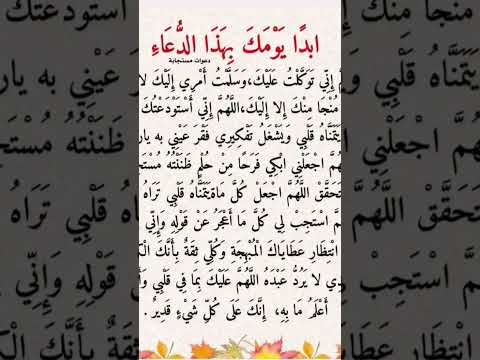 ابدًا يَوْمَكَ بِهَذَا الدُّعَاءِ
دعوات مستجابة
إِنِّي تَوَكَّلْتُ عَلَيْكَ،وَسَلَّمْتُ أَمْرِي إِلَيْكَ لا
مَنْجَا مِنْكَ إِلا إِلَيْكَ،اللَّهُمَّ إِنِّي أَسْتَوْدَعْتُكَ
يَتَمَنَّاهُ قَلْبِي وَيَشْغَلُ تَفْكِيرِي فَقَرَّ عَيْنِي بِهِ
اجْعَلْنِي ابْكِي فَرَحًا مِنْ حُلْمٍ ظَنَنْتُهُ
تَحَقَّقَ اللَّهُمَّ اجْعَلْ كُلَّ مَاةيَتَمَنَّاهُ قَلْبِي تَرَاهُ
اسْتَجِبْ لِي كُلَّ مَا أَعْجَزُ عَنْ قَوْلِهِ وَإِنِّي
انْتِظَارِ عَطَايَاكَ الْمُبْهِجَةِ وَكُلِّي ثِقَةٌ بِأَنَّكَ
لا يَرُدُّ عَبْدَهُ اللَّهُمَّ عَلَيْكَ بِمَا فِي قَلْبِي
أَعْلَمُ مَا بِهِ، إِنَّكَ عَلَى كُلِّ شَيْءٍ قَدِيرٌ .